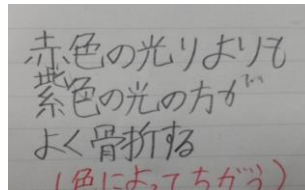 赤色の光りよりも
紫色の光の方が
よく骨折する
(色によってちがう)